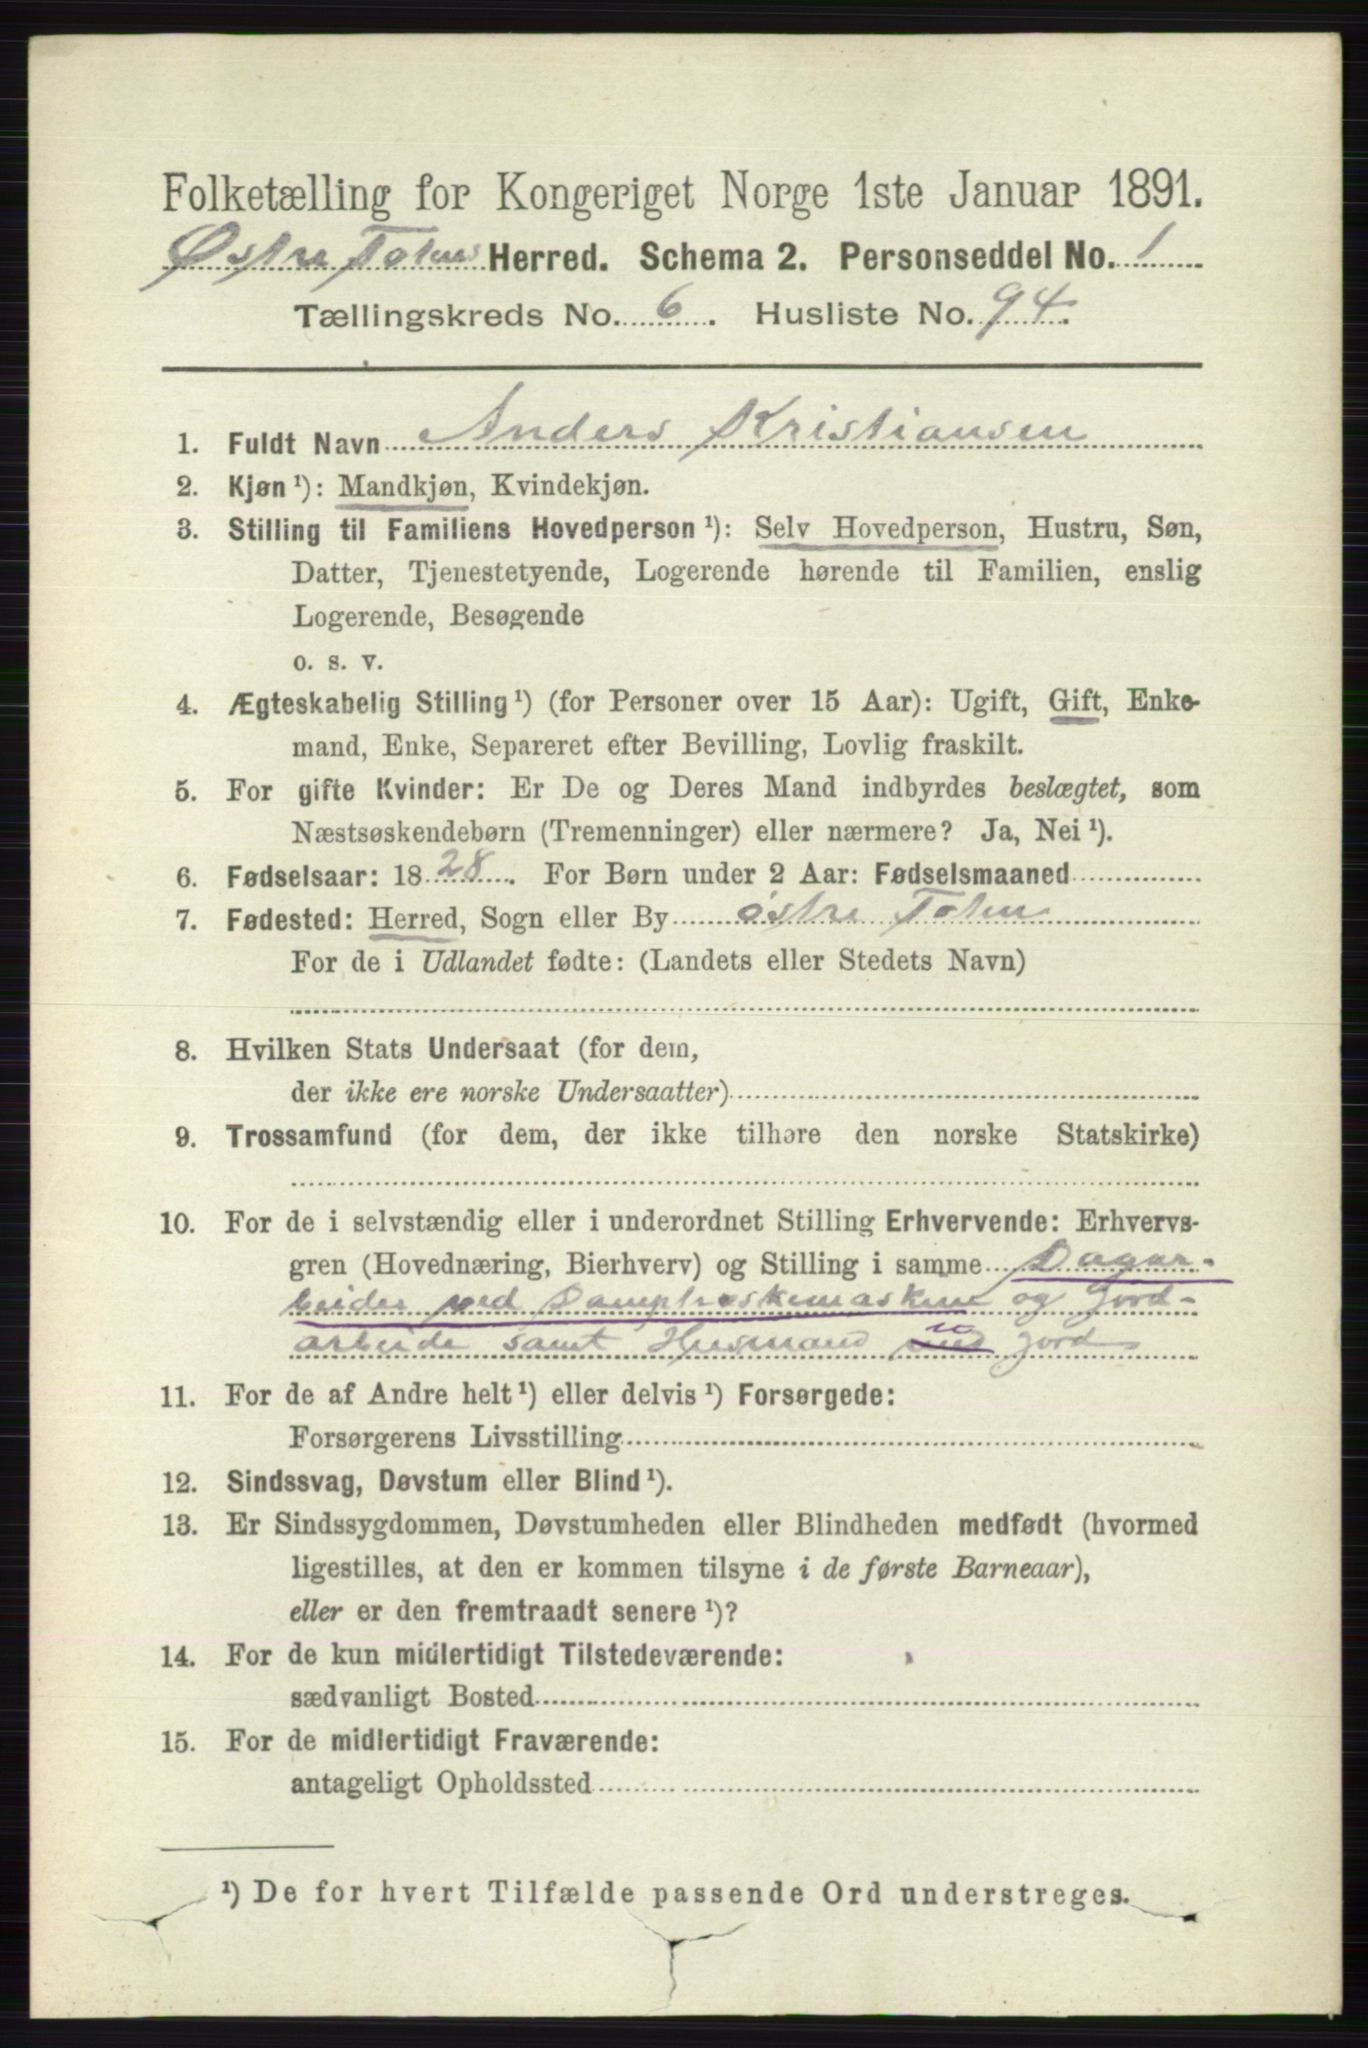 Folketælling for Kongeriget Norge 1ste Januar 1891.
Østre Totens Herred. Schema 2. Personseddel No. 1
Tællingskreds No. 6. Husliste No. 94.
1. Fuldt Navn Anders Kristiansen
2. Kjøn ¹): Mandkjøn, Kvindekjøn.
3. Stilling til Familiens Hovedperson ¹): Selv Hovedperson, Hustru, Søn,
Datter, Tjenestetyende, Logerende hørende til Familien, enslig
Logerende, Besøgende
o. s. v.
4. Ægteskabelig Stilling ¹) (for Personer over 15 Aar): Ugift, Gift, Enke-
mand, Enke, Separeret efter Bevilling, Lovlig fraskilt.
5. For gifte Kvinder: Er De og Deres Mand indbyrdes beslægtet, som
Næstsøskendebørn (Tremenninger) eller nærmere? Ja, Nei ¹).
6. Fødselsaar: 1828. For Børn under 2 Aar: Fødselsmaaned
7. Fødested: Herred, Sogn eller By østre Toten
For de i Udlandet fødte: (Landets eller Stedets Navn)
8. Hvilken Stats Undersaat (for dem,
der ikke ere norske Undersaatter)
9. Trossamfund (for dem, der ikke tilhøre den norske Statskirke)
10. For de i selvstændig eller i underordnet Stilling Erhvervende: Erhvervs-
gren (Hovednæring, Bierhverv) og Stilling i samme Dagar-
beider ved Damptræskemaskine og Jord-
arbeide samt Husmand med Jord
11. For de af Andre helt ¹) eller delvis ¹) Forsørgede:
Forsørgerens Livsstilling
12. Sindssvag, Døvstum eller Blind ¹).
13. Er Sindssygdommen, Døvstumheden eller Blindheden medfødt (hvormed
ligestilles, at den er kommen tilsyne i de første Barneaar),
eller er den fremtraadt senere ¹)?
14. For de kun midlertidigt Tilstedeværende:
sædvanligt Bosted
15. For de midlertidigt Fraværende:
antageligt Opholdssted
¹) De for hvert Tilfælde passende Ord understreges.